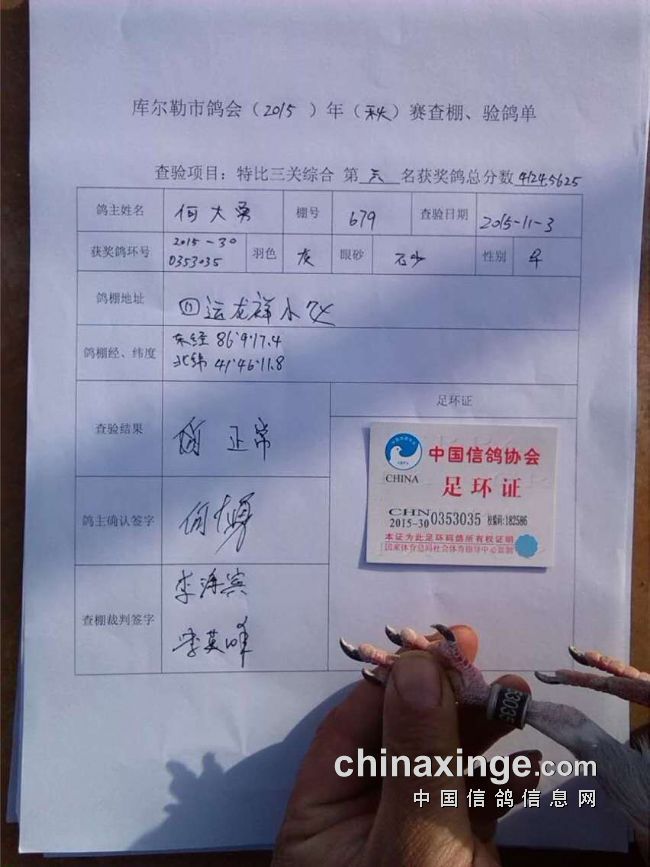 库尔勒市鸽会（2015）年（秋）赛查棚、验鸽单
查验项目：特比三关综合 第 名获奖鸽总分数4124.5625
鸽主姓名 何大勇 棚号 679 查验日期 2015-11-3
获奖鸽环号 2015-30 0353035 羽色 灰 眼砂 石少 性别 早
鸽棚地址 四运龙祥小区
鸽棚经、纬度 东经 86°9'17.4
北纬 41°46'11.8
足环证
查验结果 正常
中国信鸽协会
CHINA
足环证
CHN
2015-30 0353035 校编码:182586
本证为此足环码鸽所有权证明
国家体育总局社会体育指导中心监制
鸽主确认签字 何大勇
查棚裁判签字 李海宾
李英峰
30035
chinaxinge.com
中国信鸽信息网